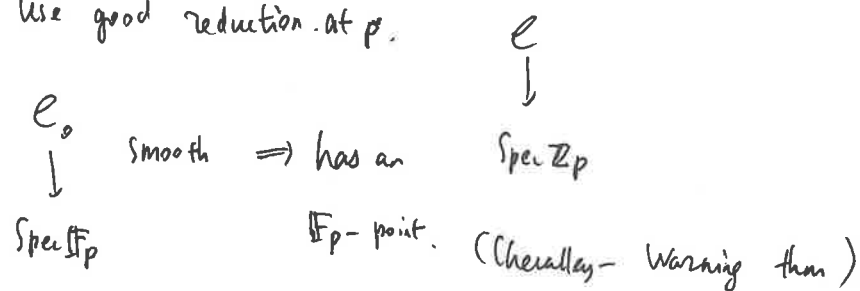 Use good reduction at p.
e
↓
Spec ℤp
e₀
↓
Spec 𝔽p
smooth ⟹ has an
𝔽p-point.
(Chevalley - Warning thm)